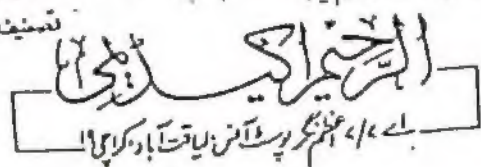 تصنیف
الرحیم اکیڈیمی
اے ۷/۷ اعظم نگر پوسٹ آفس لیاقت آباد، کراچی ۱۹